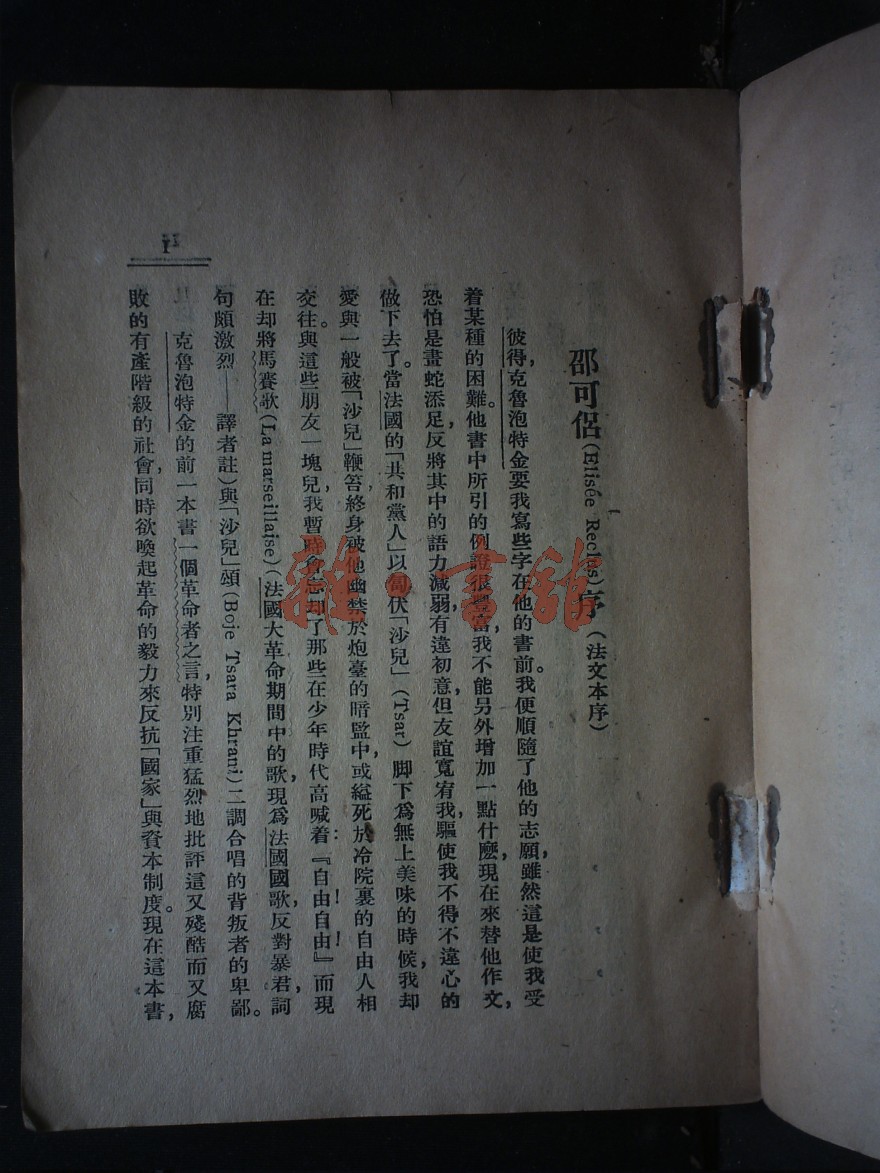 邵可侶(Elisée Reclus)序(法文本序)
彼得，克魯泡特金要我寫些字在他的書前。我便順隨了他的志願，雖然這是使我受
着某種的困難。他書中所引的例證很豐富，我不能另外增加一點什麼，現在來替他作文，
恐怕是畫蛇添足，反將其中的語力減弱，有違初意，但友誼寬宥我，驅使我不得不違心的
做下去了。當法國的「共和黨人」以匍伏「沙兒」(Tsar)脚下爲無上美味的時候，我却
愛與一般被「沙兒」鞭笞，終身被他幽禁於炮臺的暗監中，或縊死於冷院裏的自由人相
交往。與這些朋友一塊兒，我暫時會忘却了那些在少年時代高喊着：『自由！自由！』而現
在却將馬賽歌(La marseillaise)(法國大革命期間中的歌，現爲法國國歌，反對暴君，詞
句頗激烈——譯者註)與「沙兒」頌(Boje Tsara Khrani)二調合唱的背叛者的卑鄙。
克魯泡特金的前一本書一個革命者之言，特別注重猛烈地批評這又殘酷而又腐
敗的有產階級的社會，同時欲喚起革命的毅力來反抗「國家」與資本制度。現在這本書，
1
雜·書館